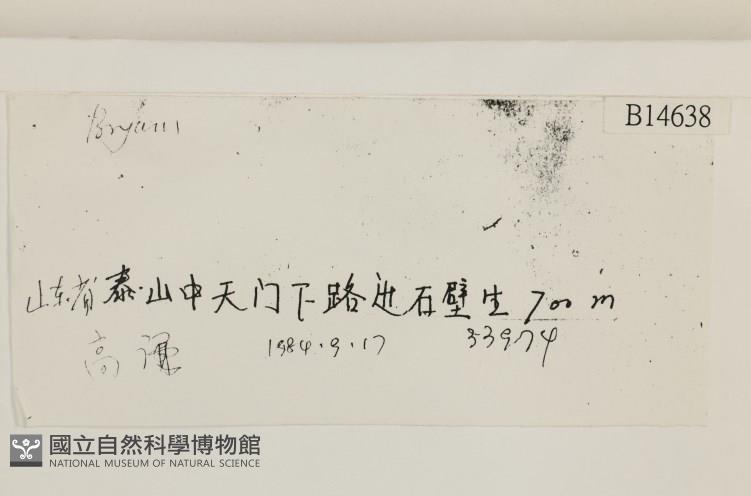 Bryum
B14638
山东省泰山中天门下路边石壁生 700 m
高谦 1984.9.17 33974
國立自然科學博物館
NATIONAL MUSEUM OF NATURAL SCIENCE